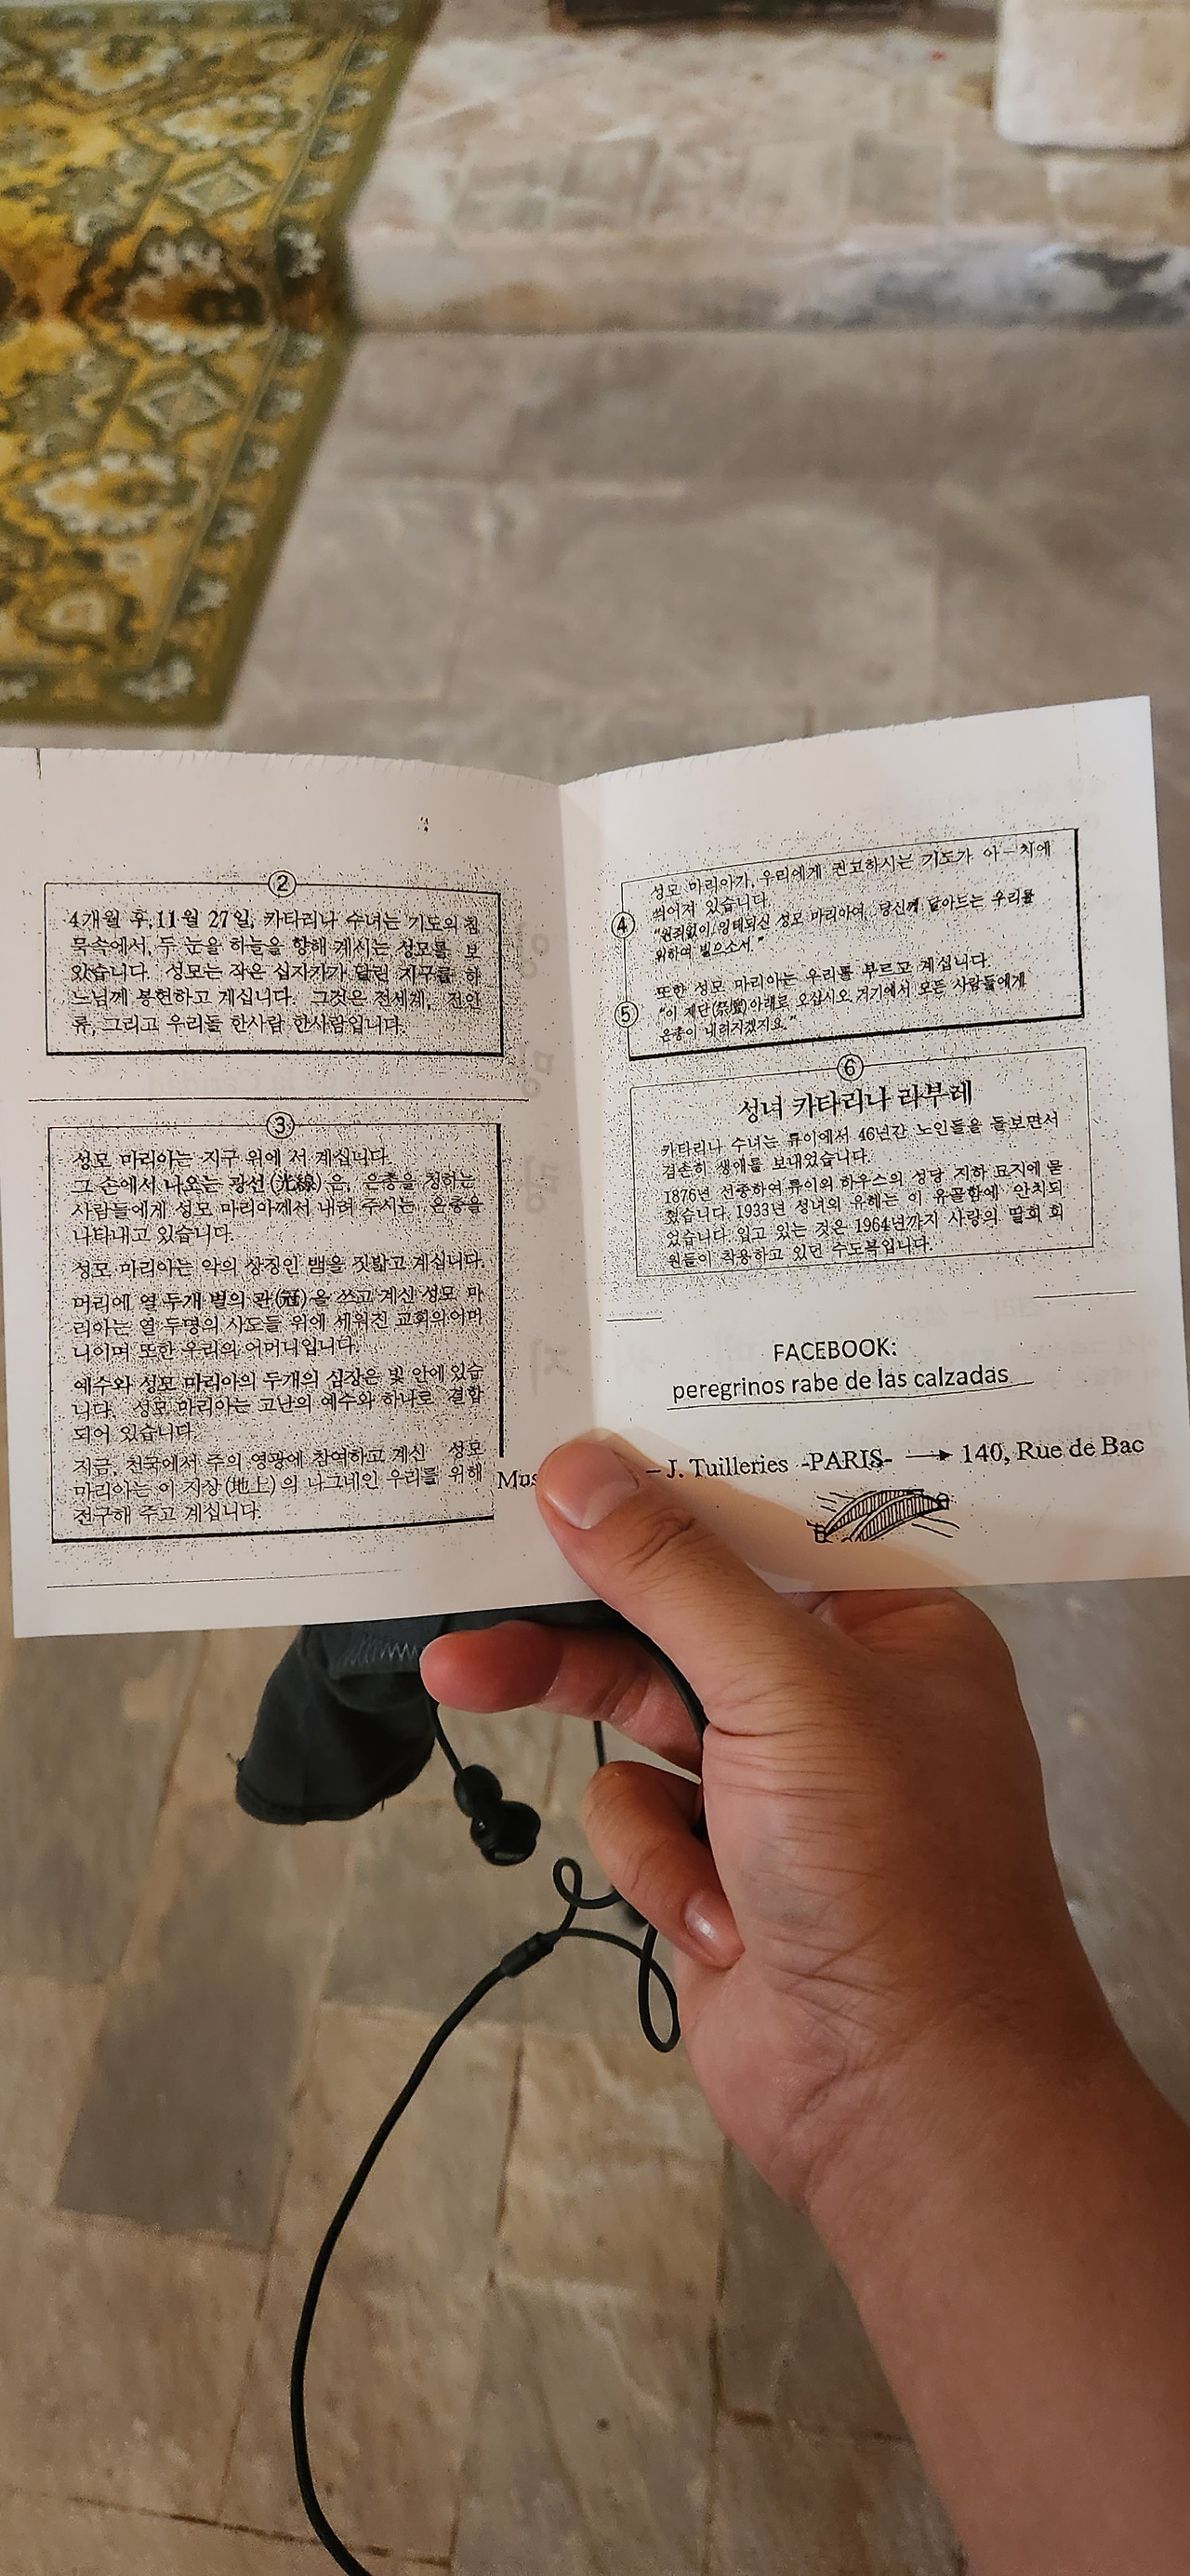 ②
4개월 후,11월 27일, 카타리나 수녀는 기도의 침
묵속에서, 두 눈을 하늘을 향해 계시는 성모를 보
았습니다. 성모는 작은 십자가가 달린 지구를 하
느님께 봉헌하고 계십니다. 그것은 전세계, 전인
류, 그리고 우리들 한사람 한사람입니다.
③
성모 마리아는 지구 위에 서 계십니다.
그 손에서 나오는 광선(光線)은, 은총을 청하는
사람들에게 성모 마리아께서 내려 주시는 은총을
나타내고 있습니다.
성모 마리아는 악의 상징인 뱀을 짓밟고 계십니다.
머리에 열 두개 별의 관(冠)을 쓰고 계신 성모 마
리아는 열 두명의 사도들 위에 세워진 교회의 어머
니이며 또한 우리의 어머니입니다.
예수와 성모 마리아의 두개의 심장은 빛 안에 있습
니다. 성모 마리아는 고난의 예수와 하나로 결합
되어 있습니다.
지금, 천국에서 주의 영광에 참여하고 계신 성모
마리아는 이 지상(地上)의 나그네인 우리를 위해
전구해 주고 계십니다.
성모 마리아가, 우리에게 권고하시는 기도가 아－치에
씌어져 있습니다.
④
"원죄없이 잉태되신 성모 마리아여, 당신께 달아드는 우리를
위하여 빌으소서."
또한 성모 마리아는 우리를 부르고 계십니다.
⑤
"이 제단(祭壇)아래로 오십시오. 거기에서 모든 사람들에게
은총이 내려지겠지요."
⑥
성녀 카타리나 라부레
카타리나 수녀는 류이에서 46년간 노인들을 돌보면서
겸손히 생애를 보내었습니다.
1876년 선종하여 류이의 하우스의 성당 지하 묘지에 묻
혔습니다. 1933년 성녀의 유해는 이 유골함에 안치되
었습니다. 입고 있는 것은 1964년까지 사랑의 딸회 회
원들이 착용하고 있던 수도복입니다.
FACEBOOK:
peregrinos rabe de las calzadas
– J. Tuilleries -PARIS- → 140, Rue de Bac